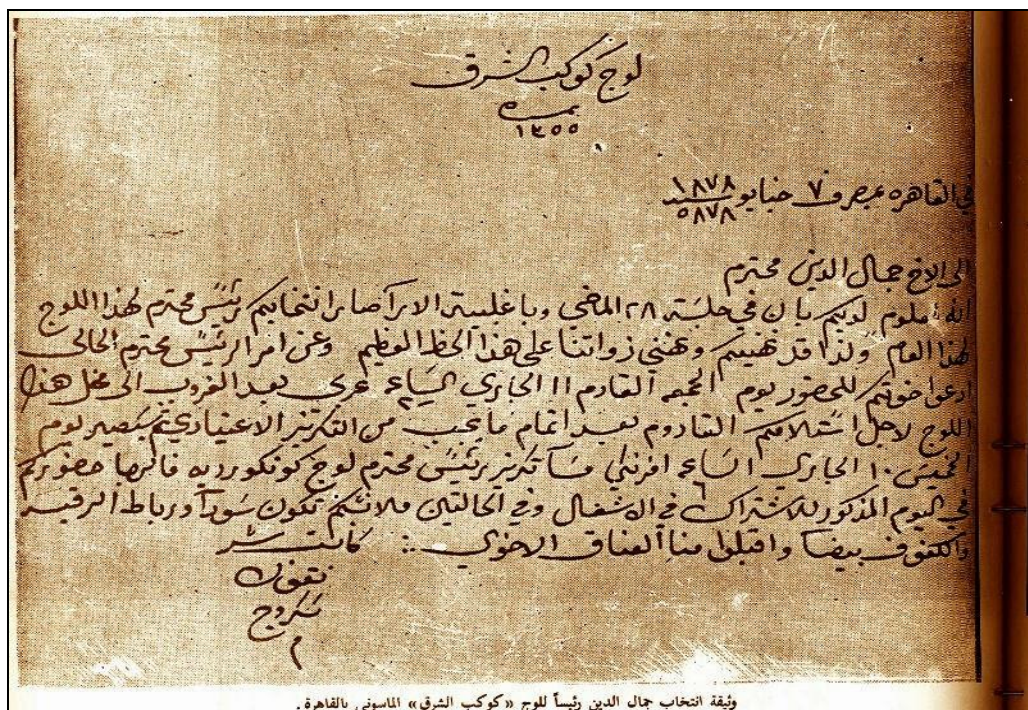 لوج كوكب الشرق
نمرة
١٣٥٥
في القاهره بمصر في ٧ جنايو سنة ١٨٧٨
٥٨٧٨
الى الاخ جمال الدين محترم
انه معلوم لديكم بان في جلسة ٢٨ الماضي وباغلبية الارآ صار انتخابكم رئيس محترم لهذا اللوج
لهذا العام ولذا قد نهنيكم ونهني ذواتنا على هذا الحظ العظيم وعن امر الرئيس محترم الحالى
ادعو اخوتكم للحضور يوم الجمعه القادم ١١ الجاري الساعه ٢ عربى بعد الغروب الى محفل هذا
اللوج لاجل استلامكم القادوم بعد اتمام ما يجب من التكريز الاعتيادي ثم سيصير يوم
الخميس ١٠ الجاري الساعه ٦ افرنكي مسآ تكريز رئيس محترم لوج كونكورديه فالرجا حضوركم
في اليوم المذكور للاشتراك في الاشغال وفي الحالتين ملابسكم تكون سودآ ورباط الرقبة
والكفوف بيضآ واقبلوا منا العناق الاخوي ∴ كاتب سر
نقولا
سكروج
م
وثيقة انتخاب جمال الدين رئيساً للوج «كوكب الشرق» الماسوني بالقاهرة.